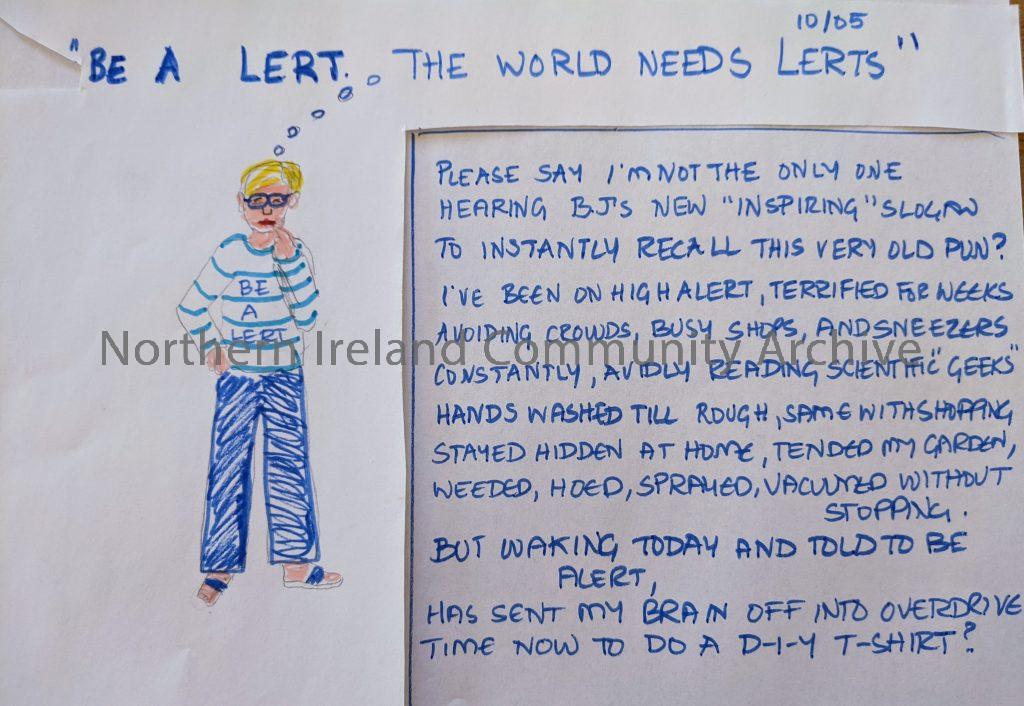 10/05
"BE A LERT. THE WORLD NEEDS LERTS"
BE
A
LERT
PLEASE SAY I'M NOT THE ONLY ONE
HEARING B.J'S NEW "INSPIRING" SLOGAN
TO INSTANTLY RECALL THIS VERY OLD PUN?
I'VE BEEN ON HIGH ALERT, TERRIFIED FOR WEEKS
AVOIDING CROWDS, BUSY SHOPS, AND SNEEZERS
CONSTANTLY, AVIDLY READING SCIENTIFIC "GEEKS"
HANDS WASHED TILL ROUGH, SAME WITH SHOPPING
STAYED HIDDEN AT HOME, TENDED MY GARDEN,
WEEDED, HOED, SPRAYED, VACUUMED WITHOUT
STOPPING.
BUT WAKING TODAY AND TOLD TO BE
ALERT,
HAS SENT MY BRAIN OFF INTO OVERDRIVE
TIME NOW TO DO A D-I-Y T-SHIRT?
Northern Ireland Community Archive